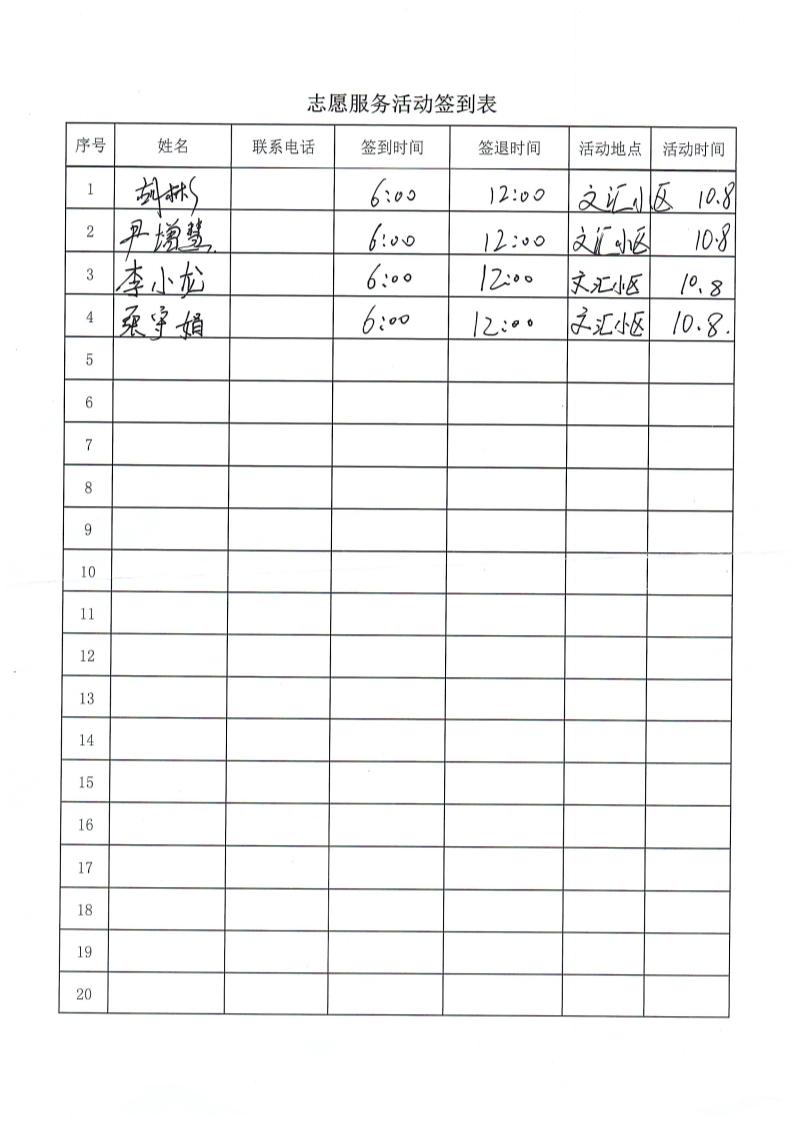 志愿服务活动签到表
序号 姓名 联系电话 签到时间 签退时间 活动地点 活动时间
1 胡彬 6:00 12:00 文汇小区 10.8
2 尹增慧 6:00 12:00 文汇小区 10.8
3 李小龙 6:00 12:00 文汇小区 10.8
4 张守娟 6:00 12:00 文汇小区 10.8.
5
6
7
8
9
10
11
12
13
14
15
16
17
18
19
20